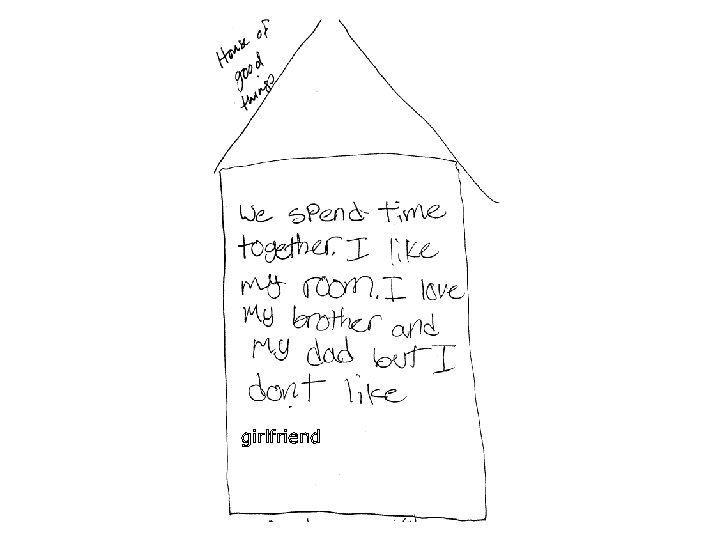 House of
good
things
We spend time
together. I like
my room. I love
My brother and
My dad but I
don't like
girlfriend